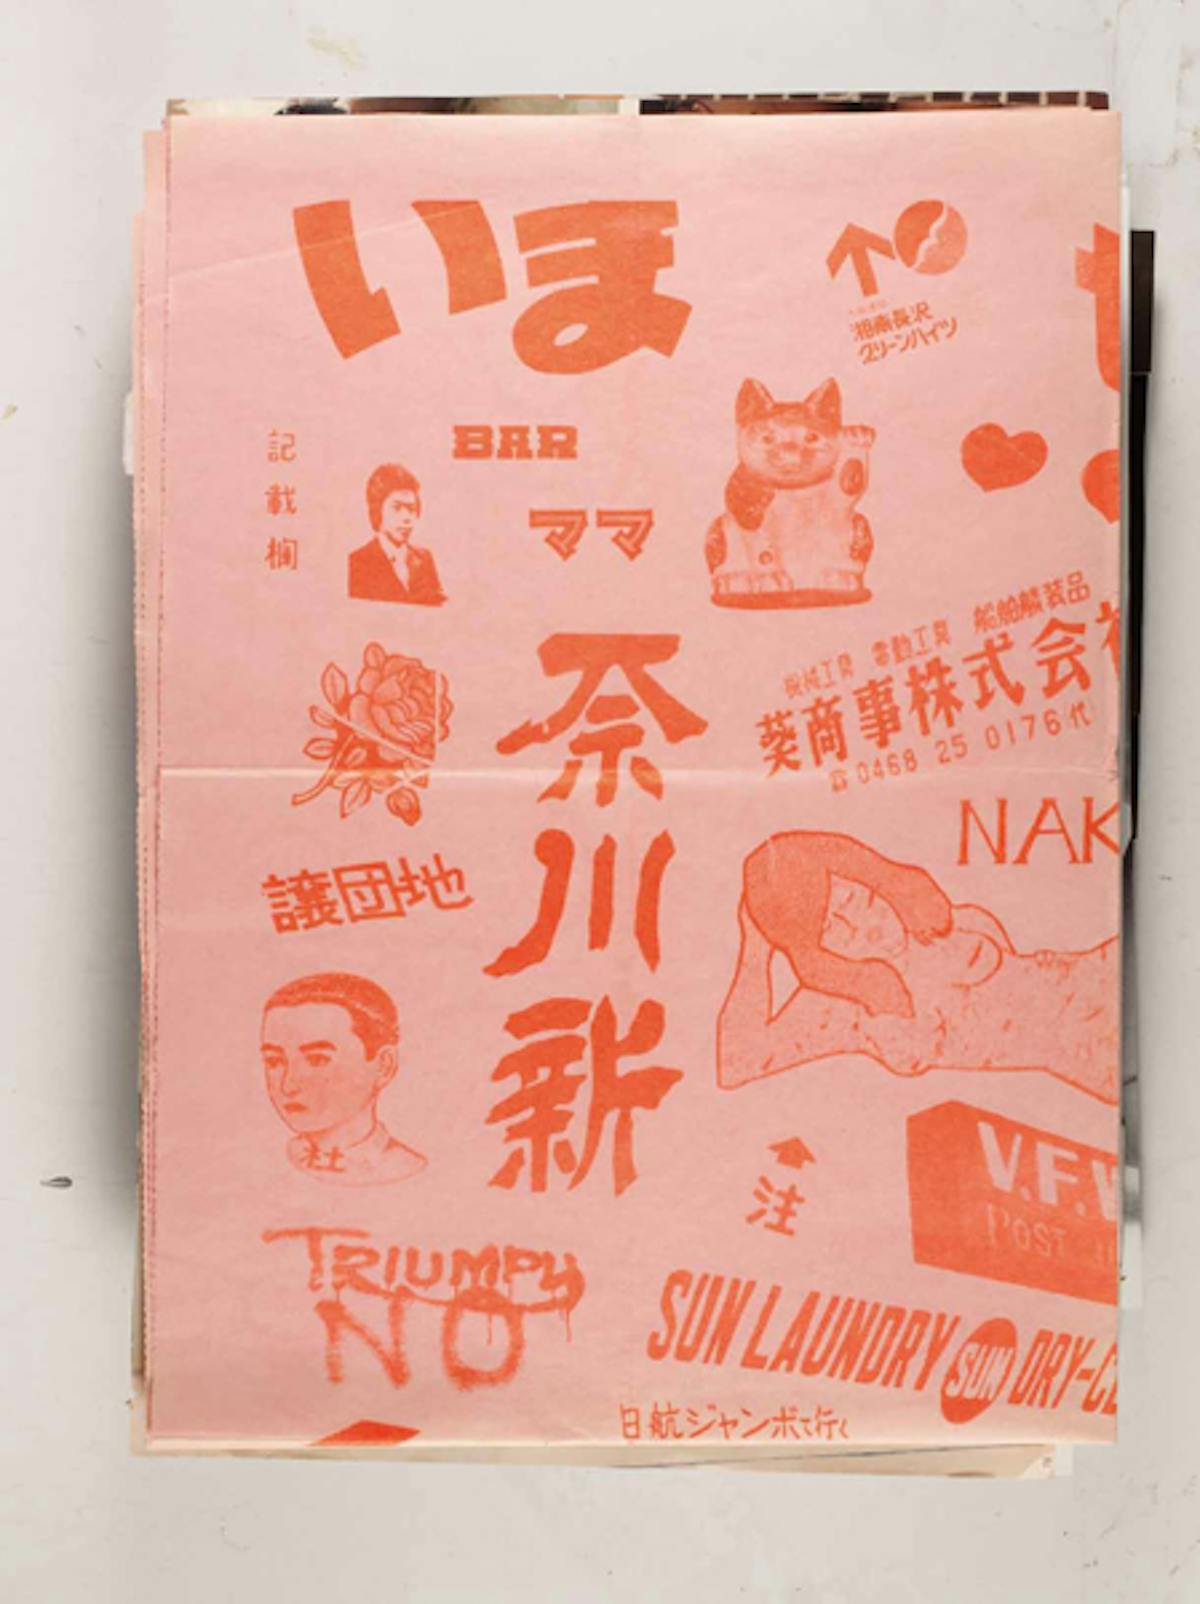 いま
湘南長沢
グリーンハイツ
記載欄
BAR
ママ
機械工具 電動工具 船舶艤装品
葵商事株式会社
☎0468 25 0176代
奈川新
NAK
譲団地
社
注
V.F.W
POST
TRIUMPY
NO
SUN LAUNDRY SUN DRY-CL
日航ジャンボで行く